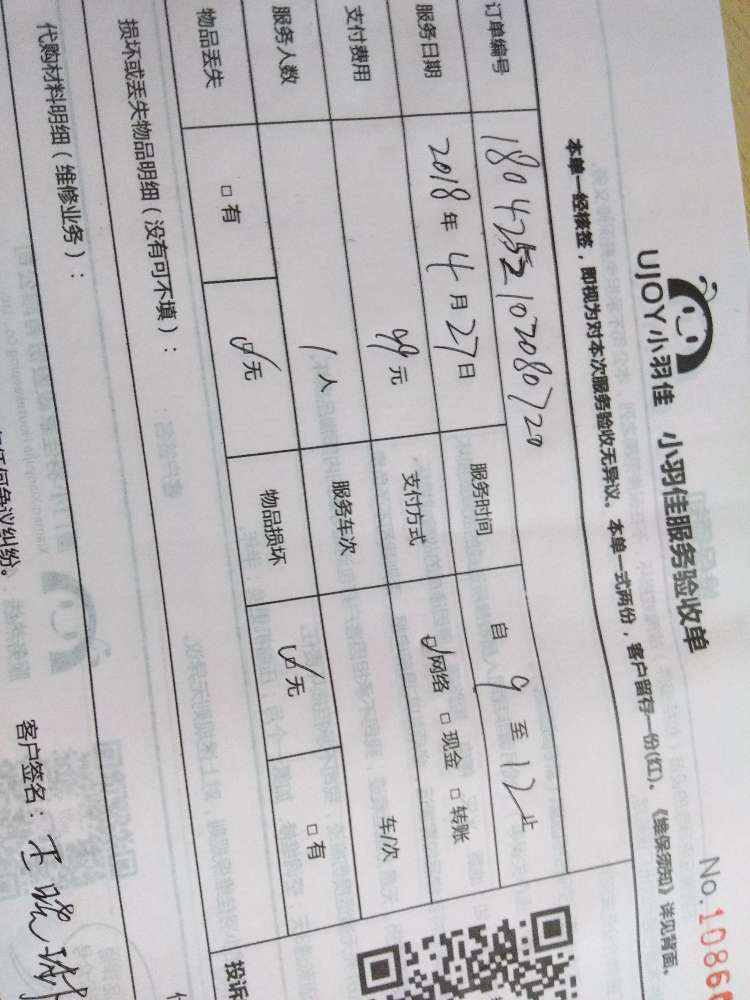 UJOY小羽佳 小羽佳服务验收单
No.1086
本单一经核签，即视为对本次服务验收无异议。本单一式两份，客户留存一份(红)。《维保须知》详见背面。
订单编号 180425210208072
服务日期 2018年4月27日 服务时间 自9至12止
支付费用 99元 支付方式 ☑网络 □现金 □转账
服务人数 1人 服务车次 车次
物品丢失 □有 ☑无 物品损坏 ☑无 □有
损坏或丢失物品明细（没有可不填）：
投诉
代购材料明细（维修业务）：
任何争议纠纷。
客户签名：王晓